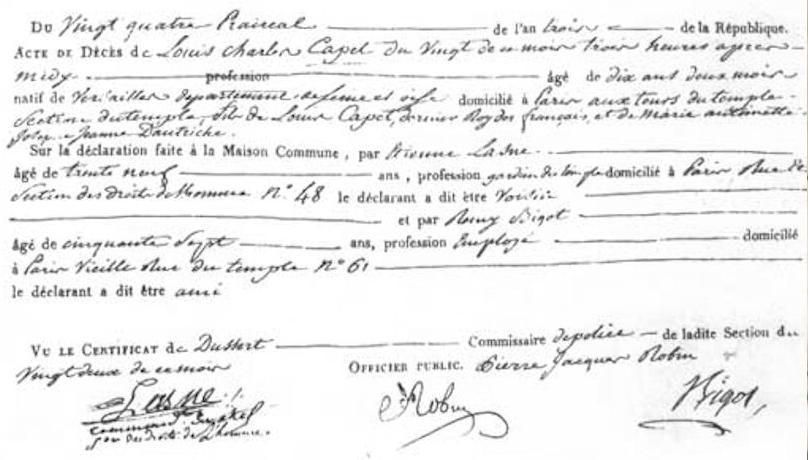 Du Vingt quatre Prairial de l'an trois de la République.
Acte de Décès de Louis Charles Capet du Vingt de ce mois trois heures apres
midy profession âgé de dix ans deux mois
natif de Versailles departement de seine et oise domicilié à Paris aux tours du temple
Section du temple, fils de Louis Capet, dernier Roy des français, et de Marie antoinette
Josephe Jeanne Dautriche.
Sur la déclaration faite à la Maison Commune, par Etienne Lasne
âgé de trente neuf ans, profession gardien du temple domicilié à Paris, Rue et
Section des droits de Lhomme N.° 48 le déclarant a dit être Voisin
et par Remy Bigot
âgé de cinquante Sept ans, profession Employé domicilié
à Paris Vieille Rue du temple N° 61
le déclarant a dit être ami
Vu le Certificat de Dussert Commissaire de police de ladite Section du
Vingt deux de ce mois Officier public. Pierre Jacques Robin
Lasne Robin Bigot,
des droits de Lhomme.